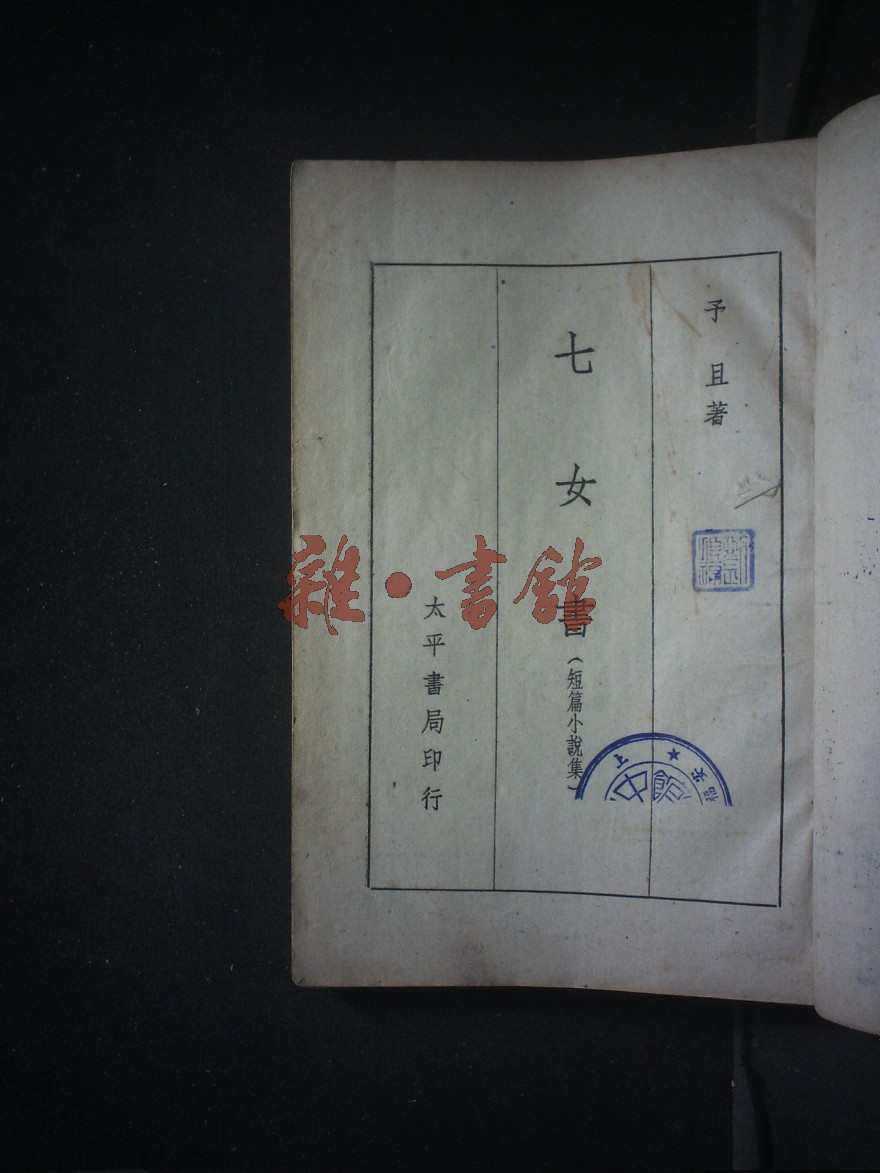 予且著
七女書
(短篇小說集)
太平書局印行
雜·書館